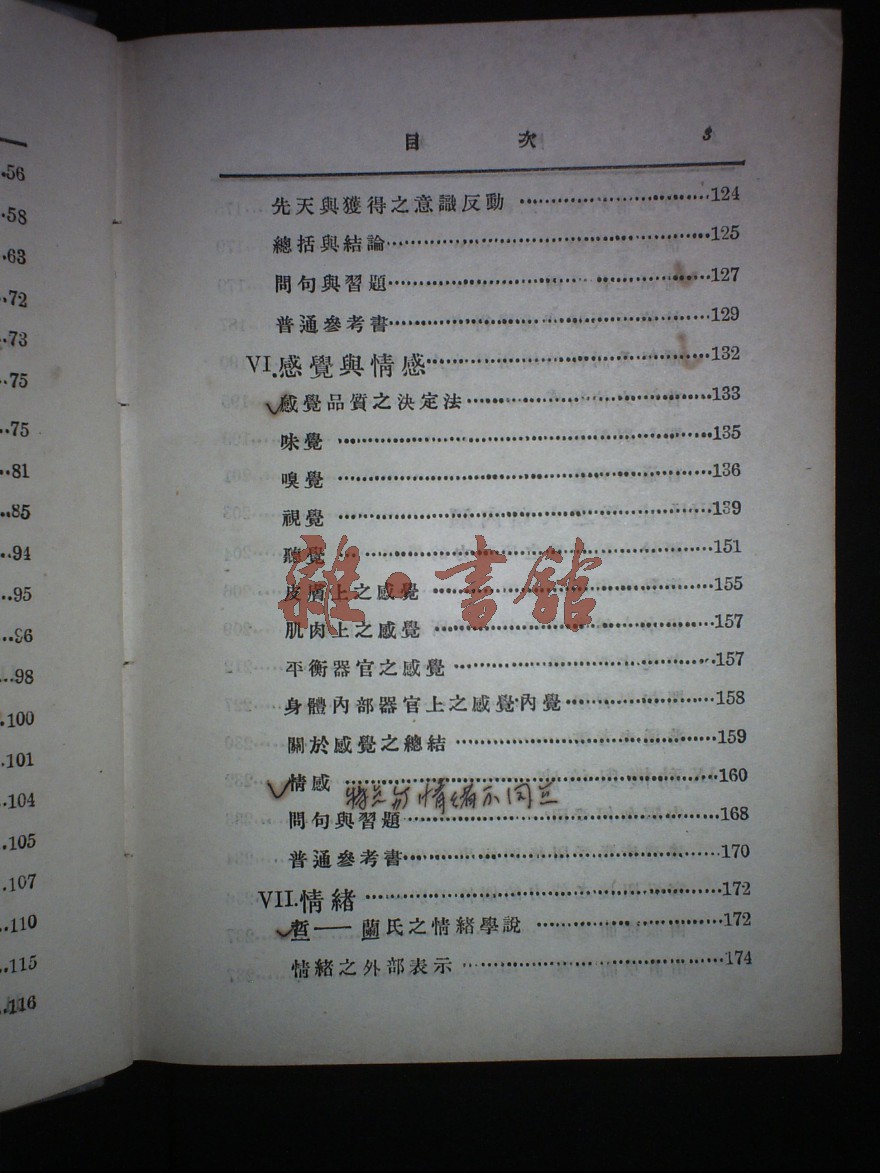 56
58
63
72
73
75
75
81
85
94
95
96
98
100
101
104
105
107
110
115
116
目 次 3
先天與獲得之意識反動 124
總括與結論 125
問句與習題 127
普通參考書 129
VI.感覺與情感 132
感覺品質之決定法 133
味覺 135
嗅覺 136
視覺 139
聽覺 151
皮膚上之感覺 155
肌肉上之感覺 157
平衡器官之感覺 157
身體內部器官上之感覺內覺 158
關於感覺之總結 159
情感 160
情緒不同
問句與習題 168
普通參考書 170
VII.情緒 172
蘭氏之情緒學說 172
情緒之外部表示 174
雜·書館